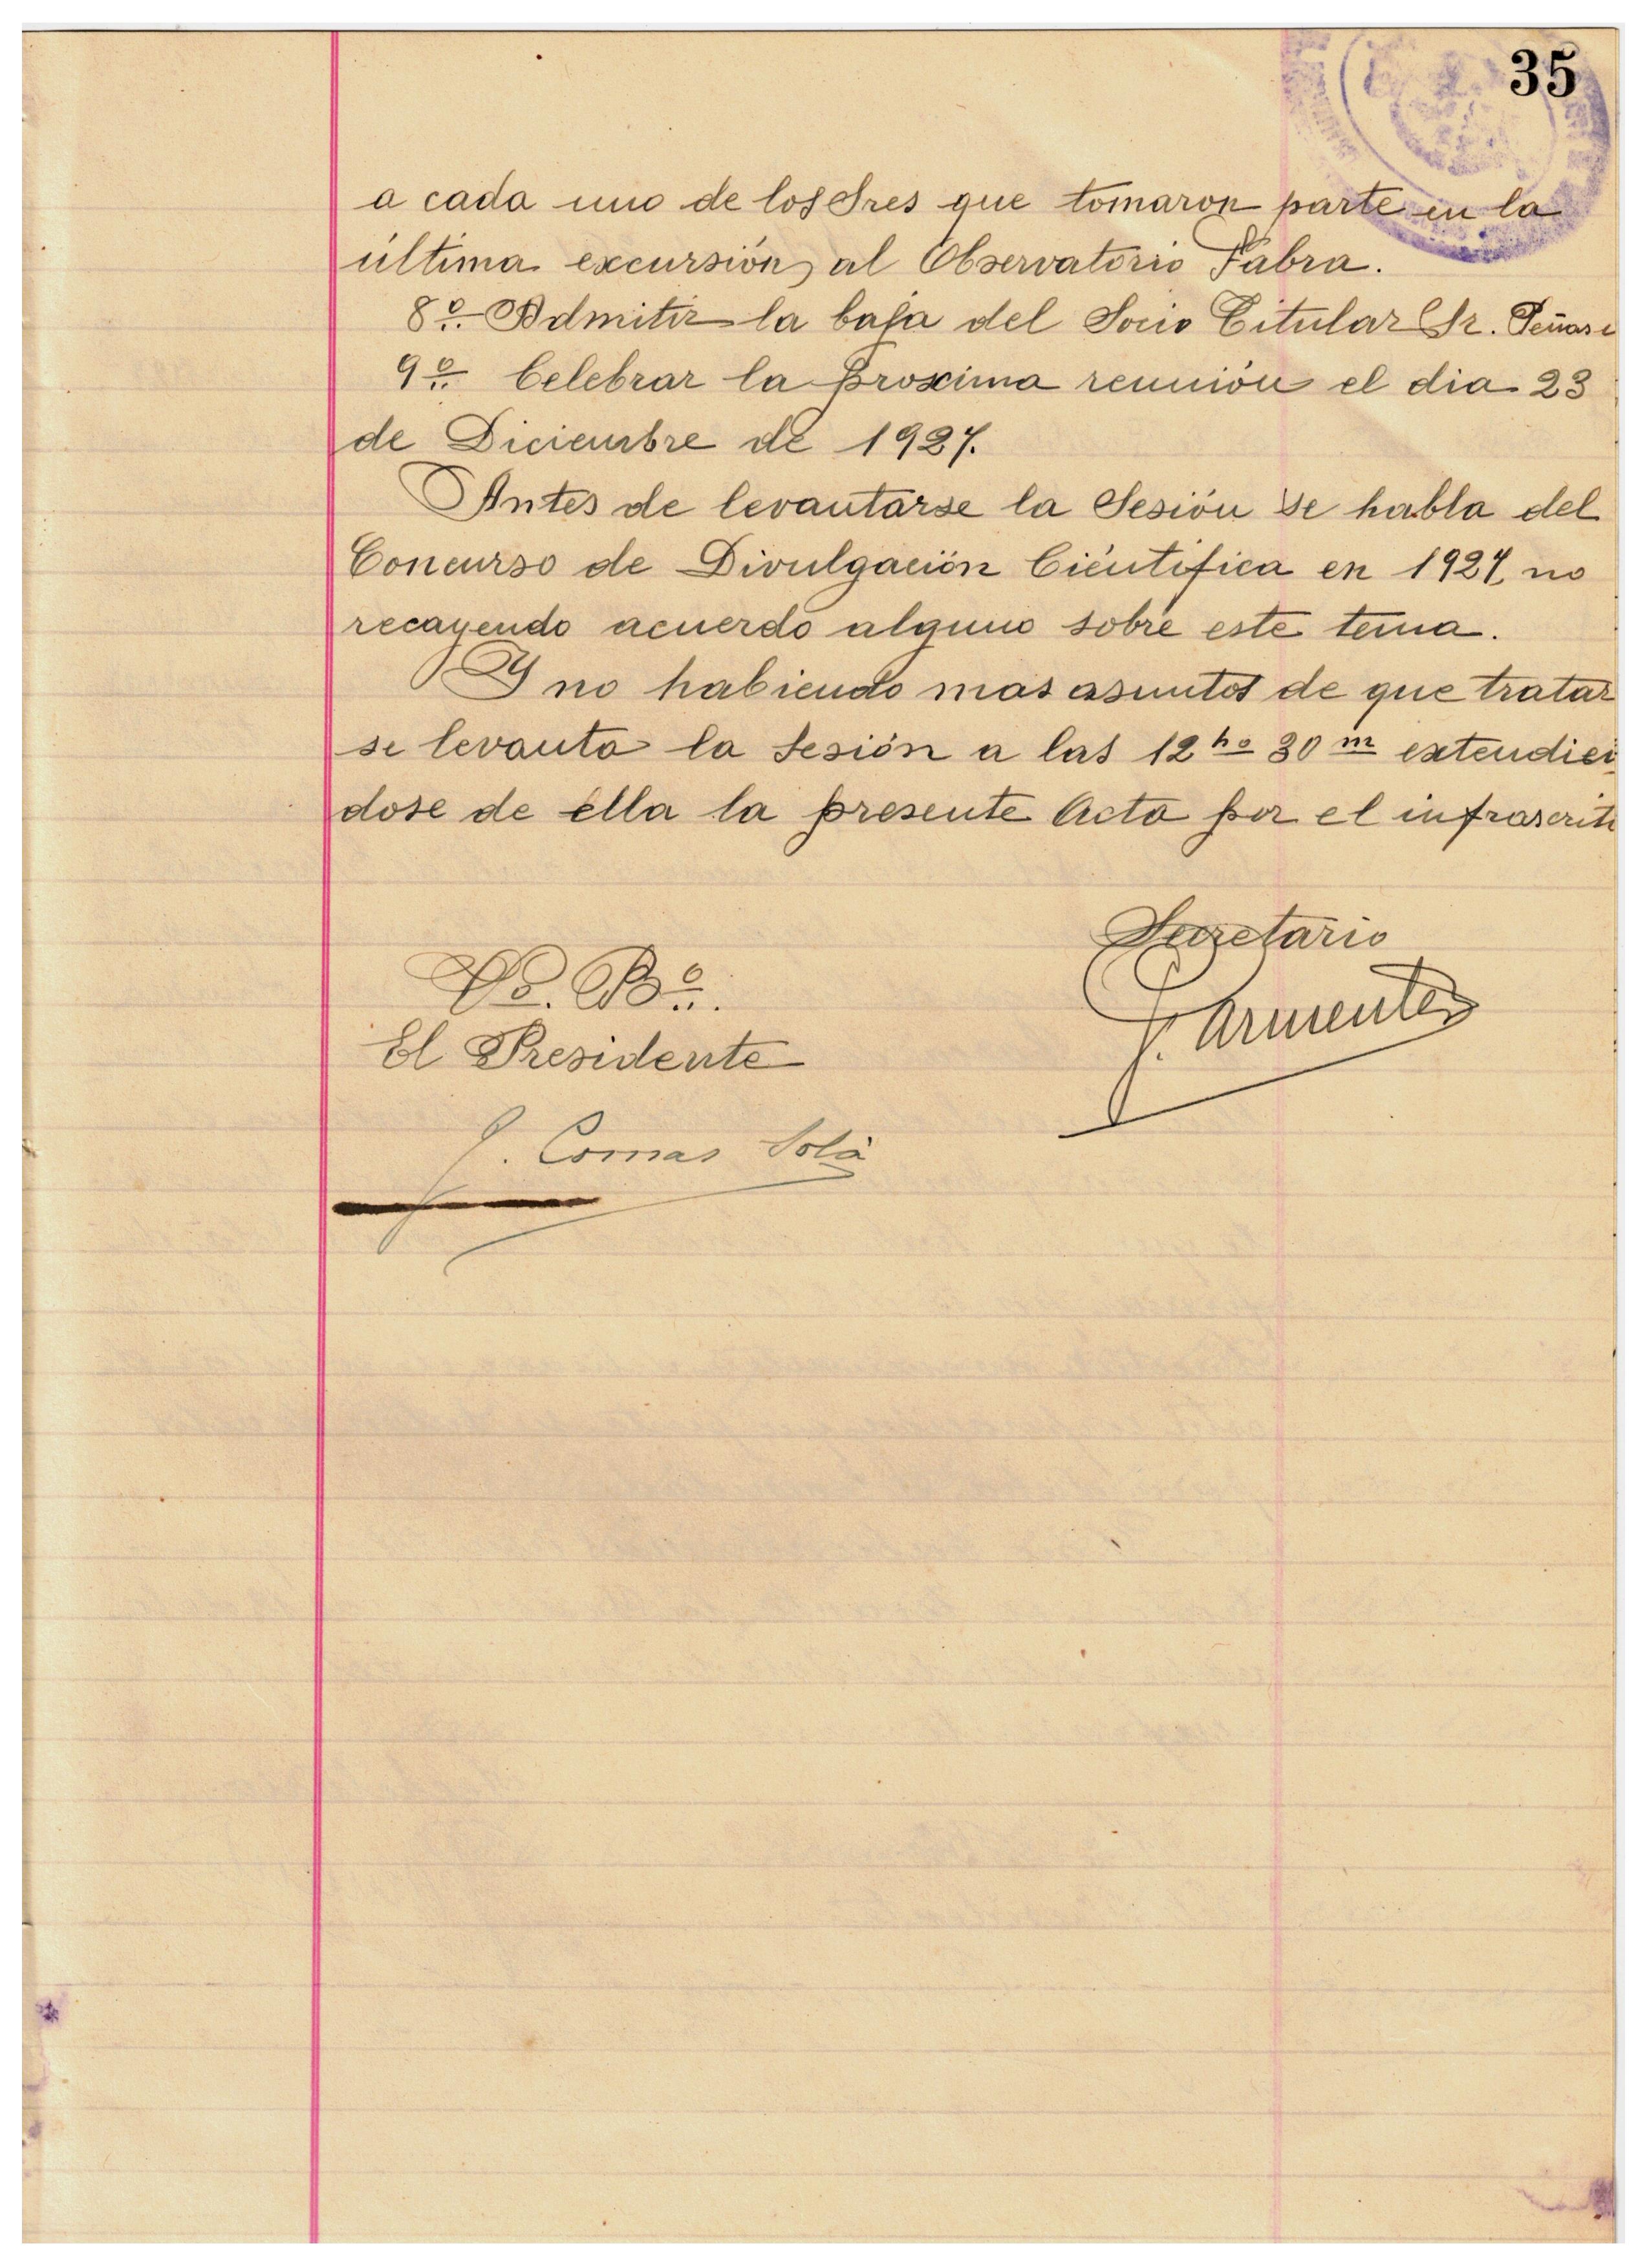 35
a cada uno de los Sres que tomaron parte en la
última excursión al Observatorio Fabra.
8º. Admitir la baja del Socio Titular Sr.
9º. Celebrar la proxima reunión el dia 23
de Diciembre de 1927.
Antes de levantarse la Sesión se habla del
Concurso de Divulgación Científica en 1927, no
recayendo acuerdo alguno sobre este tema.
Y no habiendo mas asuntos de que tratar
se levanta la Sesión a las 12 ho 30 m extendien
dose de ella la presente Acta por el infrascrito
Secretario
Vo. Bº.
J. Armenter
El Presidente
J. Comas Solà